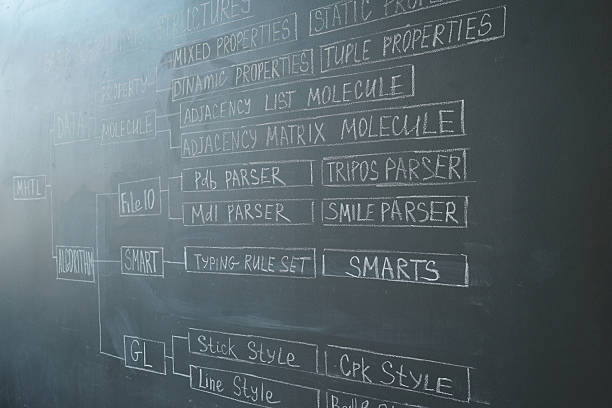 STRUCTURES
STATIC PROPERTIES
MIXED PROPERTIES
TUPLE PROPERTIES
PROPERTY
DINAMIC PROPERTIES
ADJACENCY LIST MOLECULE
DATA
MOLECULE
ADJACENCY MATRIX MOLECULE
Pdb PARSER
TRIPOS PARSER
MHTL
File IO
Mdl PARSER
SMILE PARSER
ALGORITHM
SMART
TYPING RULE SET
SMARTS
GL
Stick Style
Cpk Style
Line Style